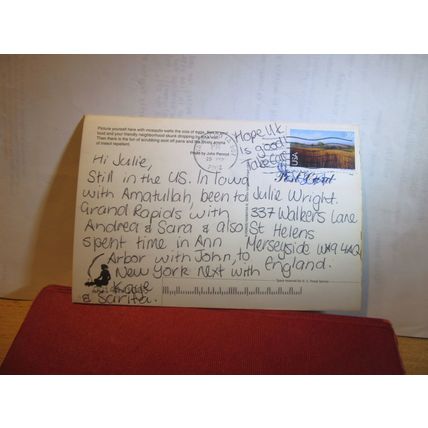 Picture yourself here with mosquito welts the size of eggs
and your friendly neighborhood skunk dropping by
Then there is the fun of scrubbing soot off pans and the
of insect repellent.
Photo by John Penrod
Hope U.K.
is good!
Take Care
USA
Hi Julie,
Still in the US. In Iowa
with Amatullah, been to
Grand Rapids with
Andrea & Sara & also
spent time in Ann
Arbor with John, to
New York next with
Kaye
& Sarita.
Julie Wright.
337 Walkers Lane
St Helens
Merseyside WA9 4AQ
England.